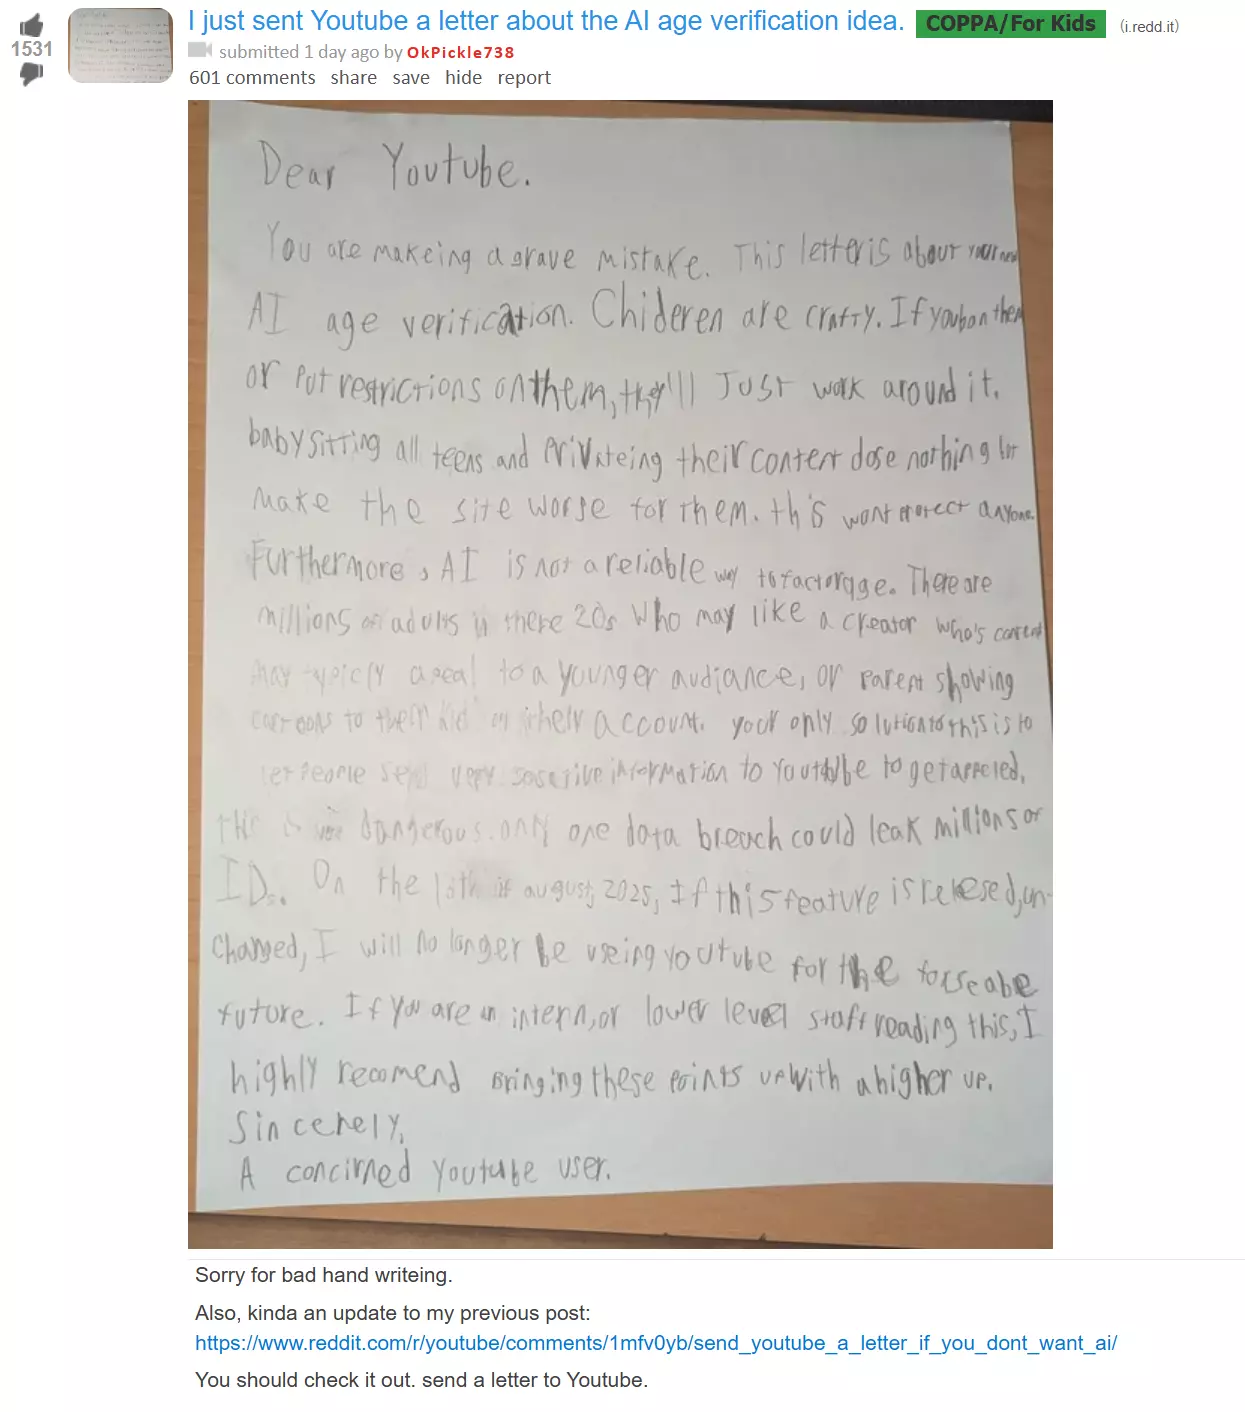 I just sent Youtube a letter about the AI age verification idea. COPPA/For Kids (i.redd.it)
1531
submitted 1 day ago by OkPickle738
601 comments share save hide report
Dear Youtube.
You are makeing a grave mistake. This letter is about your new
AI age verification. Chideren are crafty. If you ban them
or put restrictions on them, they'll Just work around it.
babysitting all teens and Privateing their content dose nothing but
make the site worse for them. this wont protect anyone.
Furthermore, AI is not a reliable way to factor age. There are
millions of adults in there 20s who may like a creator who's content
may typicly apeal to a younger audiance, or parent showing
cartoons to their kid on their account. your only solution to this is to
let people send very sosetive information to Youtube to get appeled.
this is dangerous. only one data breach could leak millions of
IDs. On the 13th of august, 2025, If this feature is relesed, un-
changed, I will no longer be useing youtube for the forseable
future. If you are an intern, or lower level staff reading this, I
highly recomend Bringing these points up with a higher up.
Sincerely,
A concirned youtube user.
Sorry for bad hand writeing.
Also, kinda an update to my previous post:
https://www.reddit.com/r/youtube/comments/1mfv0yb/send_youtube_a_letter_if_you_dont_want_ai/
You should check it out. send a letter to Youtube.